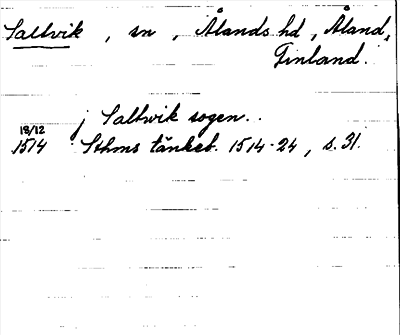 Saltvik, sn, Ålands hd, Åland,
Finland.
j Saltwik sogen..
18/12
1514 Sthms tänkeb. 1514-24, s. 31.